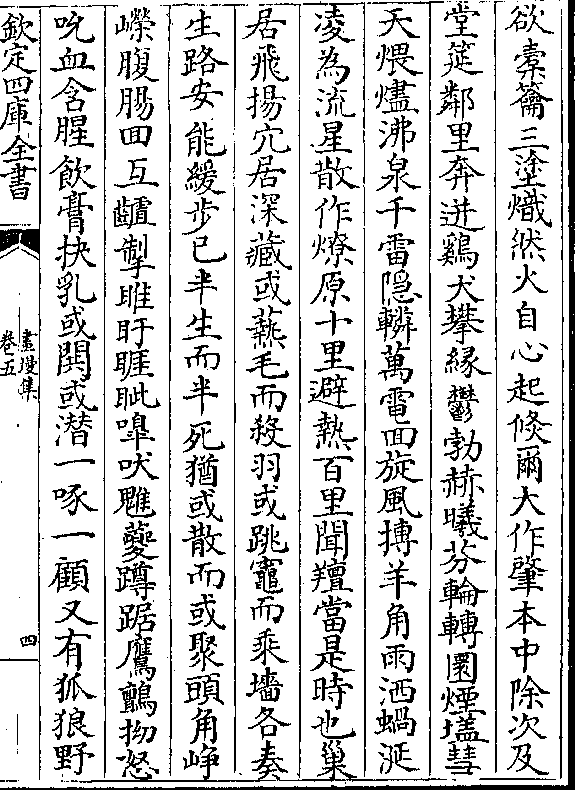 欲橐籥三塗熾然火自心起倐爾大作肇本中除次及
堂筵鄰里奔迸鷄犬攀緣鬱勃赫曦芬輪轉圜煙壒彗
天煨燼沸泉千雷隠轔萬電面旋風摶羊角雨洒蝸涎
凌為流星散作燎原十里避熱百里聞羶當是時也巢
居飛揚穴居深藏或爇毛而殺羽或跳竈而乘墻各奏
生路安能緩步已半生而半死猶或散而或聚頭角崢
嶸腹腸回互齇掣睢盱睚眦嘷吠雖夔蹲踞鷹鸇拗怒
吮血含腥飲膏抉乳或閧或潜一啄一顧又有狐狼野
欽定四庫全書
畫墁集
卷五
四